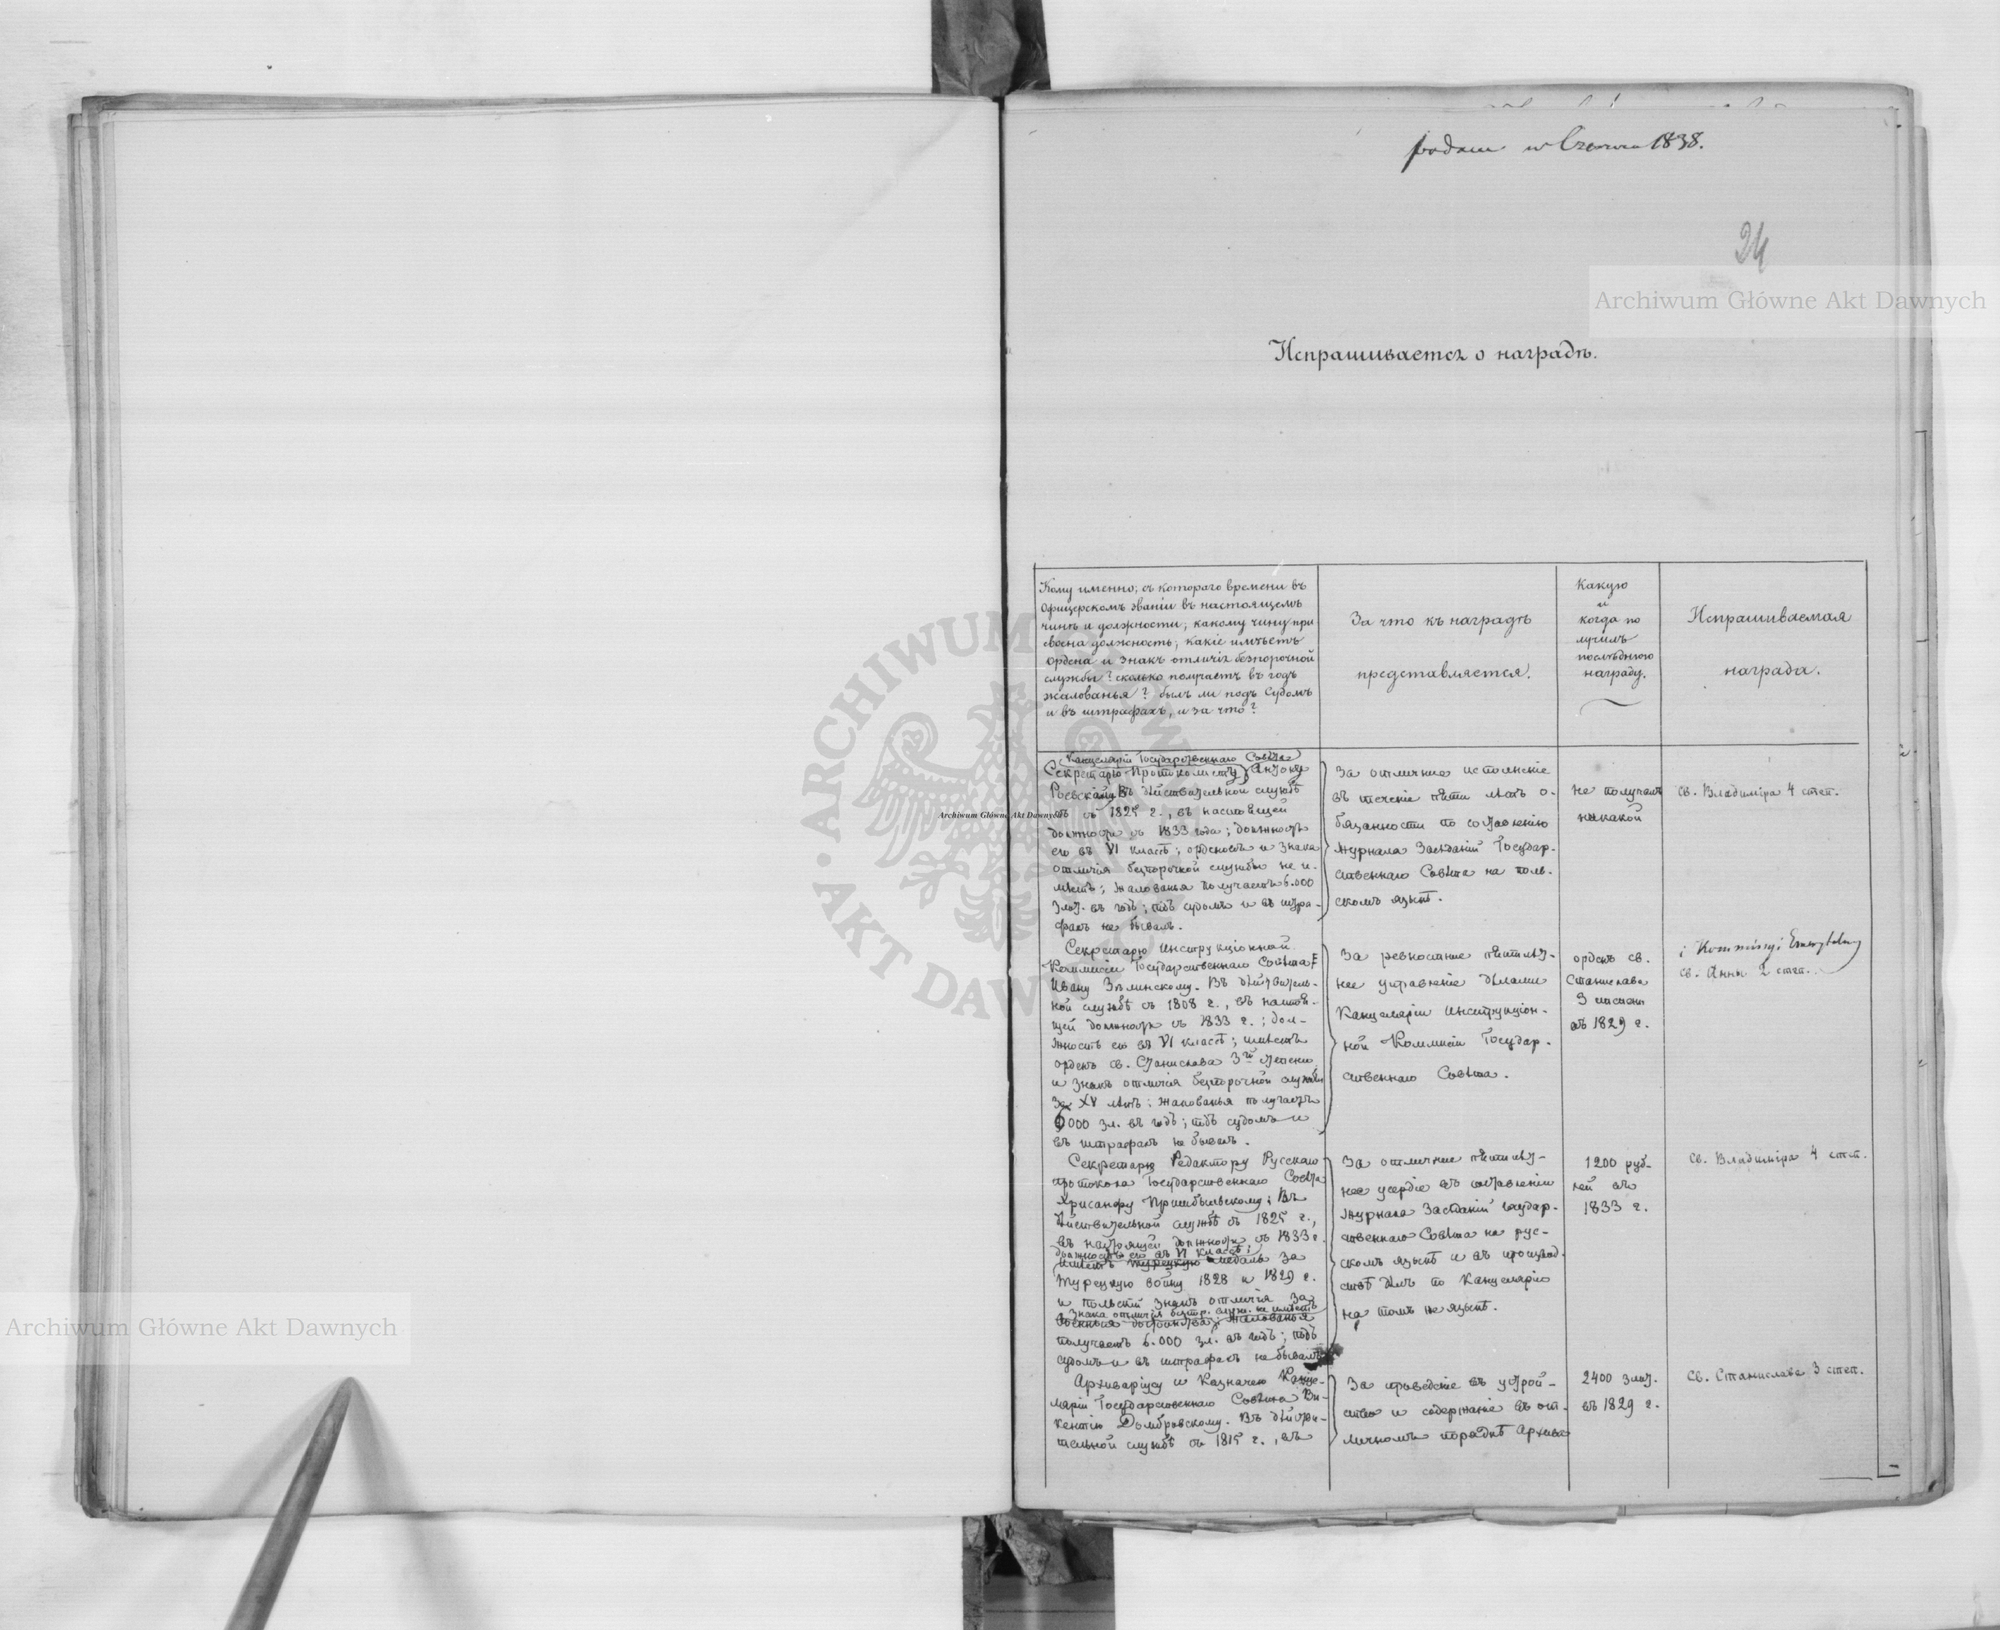 podane w Czerwcu 1838.
24
Archiwum Główne Akt Dawnych
Испрашивается о наградѣ.
Кому именно; съ котораго времени въ
офицерскомъ званіи въ настоящемъ
чинѣ и должности; какому чину при
своена должность; какіе имѣетъ
ордена и знакъ отличія безпорочной
службы? сколько получаетъ въ годъ
жалованья? былъ ли подъ судомъ
и въ штрафахъ, и за что?
За что къ наградѣ
представляется.
Какую
и
когда по
лучилъ
послѣднюю
награду.
Испрашиваемая
награда.
Канцеляріи Государственнаго Совѣта
Секретарю Протоколисту Антону
въ дѣйствительной службѣ
съ 1825 г., въ настоящей
должности съ 1833 года; должность
его въ VI классѣ; орденовъ и знака
отличія безпорочной службы не и-
мѣетъ; жалованья получаетъ 6.000
злот. въ годъ; подъ судомъ и въ штра-
фахъ не бывалъ.
За отличное исполненіе
въ теченіе пяти лѣтъ о-
бязанности по составленію
журнала Засѣданій Государ-
ственнаго Совѣта на поль-
скомъ языкѣ.
не получалъ
никакой
св. Владиміра 4 степ.
Archiwum Główne Akt Dawnych
Секретарю Инструкціонной
Коммисіи Государственнаго Совѣта
Ивану Зѣлинскому. Въ дѣйствитель-
ной службѣ съ 1808 г., въ настоя-
щей должности съ 1833 г.; дол-
жность его въ VI классѣ; имѣетъ
орденъ св. Станислава 3й степени
и знакъ отличія безпорочной службы
за XV лѣтъ; жалованья получаетъ
000 зл. въ годъ; подъ судомъ и
въ штрафахъ не бывалъ.
За ревностное пятилѣт-
нее управленіе дѣлами
Канцеляріи Инструкціон-
ной Коммисіи Государ-
ственнаго Совѣта.
орденъ св.
Станислава
3 степени
въ 1829 г.
i Kommissyi Emerytalney
св. Анны 2 степ.
Секретарю Редактору Русскаго
протокола Государственнаго Совѣта
Хрисанфу Пршибыльскому; Въ
дѣйствительной службѣ съ 1825 г.,
въ настоящей должности съ 1833 г.
должность его въ VI классѣ;
имѣетъ турецкую медаль за
Турецкую войну 1828 и 1829 г.
и польскій знакъ отличія за
знака отличія безпор. служ. не имѣетъ
военныя достоинства; жалованья
получаетъ 6.000 зл. въ годъ; подъ
судомъ и въ штрафахъ не бывалъ
За отличное пятилѣт-
нее усердіе въ составленіи
журнала Засѣданій Государ-
ственнаго Совѣта на рус-
скомъ языкѣ и въ производ-
ствѣ дѣлъ по Канцеляріи
на томъ же языкѣ.
1200 руб-
лей въ
1833 г.
св. Владиміра 4 степ.
Archiwum Główne Akt Dawnych
Архиваріусу и Казначею Канце-
ляріи Государственнаго Совѣта Ви-
кентію Домбровскому. Въ дѣйстви-
тельной службѣ съ 1815 г., въ
За приведеніе въ устрой-
ство и содержаніе въ от-
личномъ порядкѣ Архива
2400 злот.
въ 1829 г.
св. Станислава 3 степ.
ARCHIWUM GŁÓWNE AKT DAWNYCH